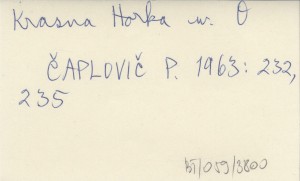 Krasna Horka w. O
ČAPLOVIČ P. 1963: 232,
235
BT/059/3800